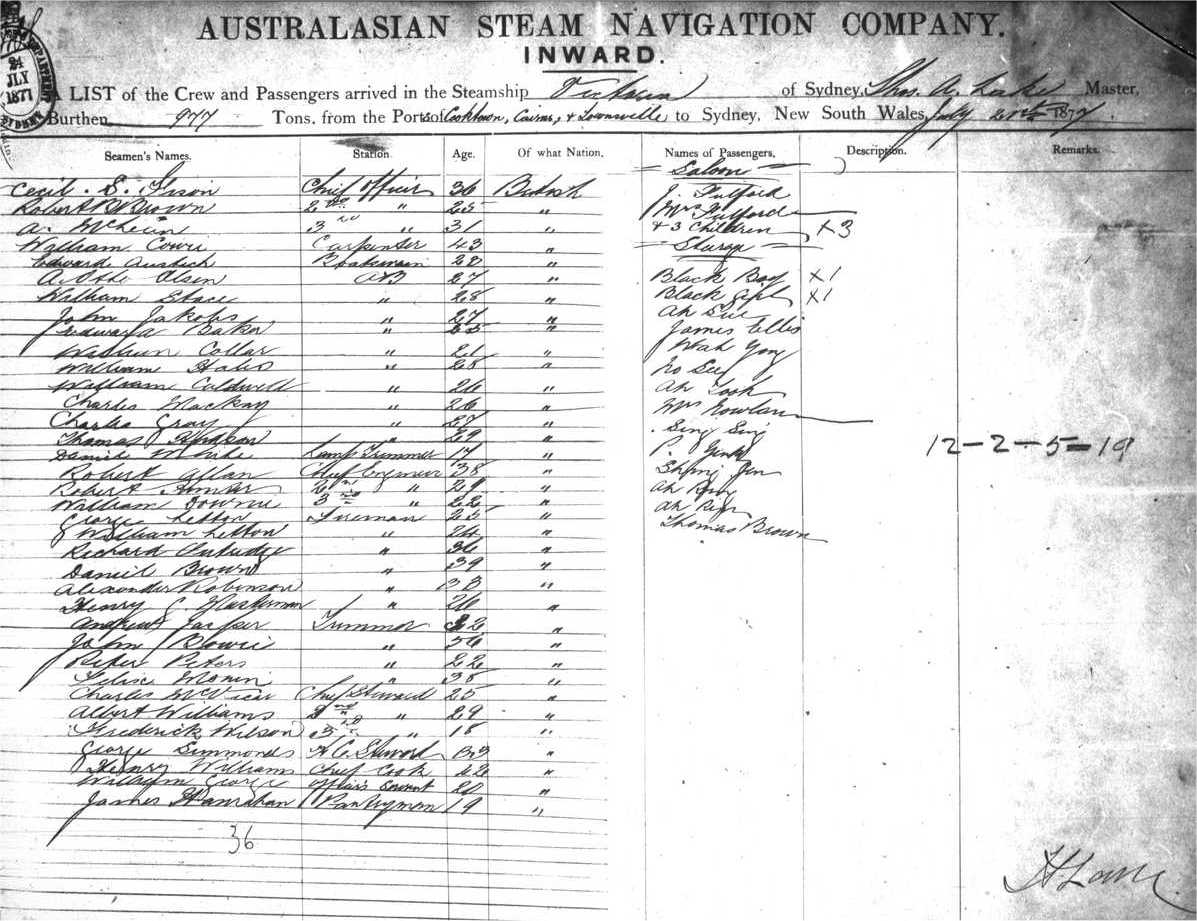 AUSTRALASIAN STEAM NAVIGATION COMPANY.
INWARD.
24
JLY
1877
A LIST of the Crew and Passengers arrived in the Steamship Victoria of Sydney, Thos. A. Lake Master,
Burthen 977 Tons, from the Ports of Cooktown, Cairns, & Townsville to Sydney, New South Wales, July 21st 1877.
Seamen's Names. Station. Age. Of what Nation. Names of Passengers. Description. Remarks.
Saloon
Cecil S. Chief Officer 36 British J. Fulford
Robert Brown 2nd " 25 " Mrs Fulford
A. 3rd " 31 " & 3 Children X3
William Cowie Carpenter 43 " Steerage
Edward Boatswain 28 "
A. Otho Olsen AB 27 " Black Boy X1
William Stace " 28 " Black Girl X1
John Jakobs " 27 " Ah Sue
Edward Baker " " James Ellis
William Collar " " Wah Yong
William Hales " 28 "
William Caldwell " 26 " Ah Took
Charles Mackay " 26 " Mrs
Charles Gray " 27 " Sing Sing
Thomas Hudson " 29 " 12-2-5=19
Daniel Lamp Trimmer 17 " P.
Robert Allan Chief Engineer 38 "
Robert 2nd " 29 " Ah
William Downie 3rd " 22 " Ah
George Letton Fireman 25 " Thomas Brown
William Letton " 24 "
Richard " 36 "
Daniel Brown " 39 "
Alexander Robinson " 33 "
Henry C. " 26 "
Andrew Jasper Trimmer "
John Bowie " 56 "
Peter Peters " 22 "
Felix Monin " 38 "
Charles McVicar Chief Steward 25 "
Albert Williams 2nd " 29 "
Frederick Wilson 3rd " 18 "
George Simmonds Steward 33 "
Henry Williams Chief Cook 22 "
William George Servant 20 "
James Hanrahan Pantryman 19 "
36